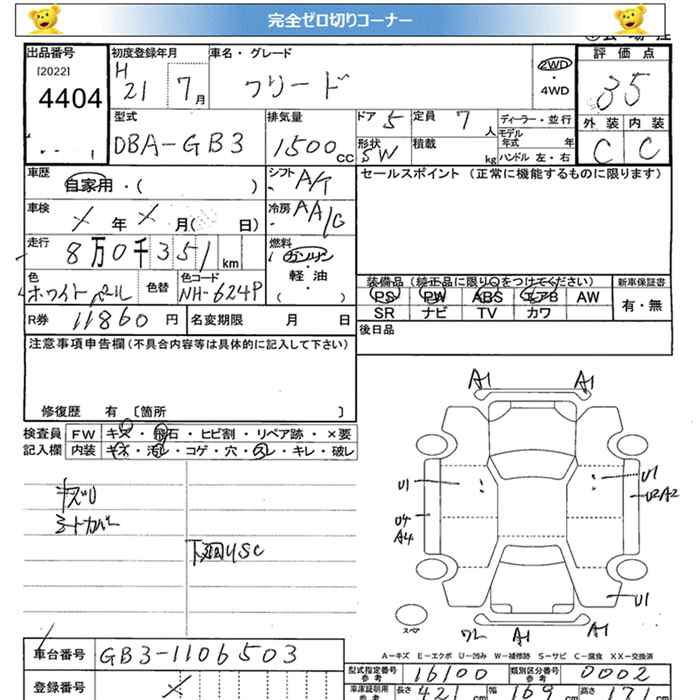 完全ゼロ切りコーナー
出品番号 初度登録年月 車名・グレード 評価点
[2022] 4404 H 21 7月 フリード 2WD・4WD 35
型式 排気量 ドア 5 定員 7人 ディーラー・並行 外装 内装
DBA-GB3 1500cc 形状 SW 積載 kg モデル年式 年 C C
ハンドル 左・右
車歴 シフト A/T セールスポイント (正常に機能するものに限ります)
自家用・( )
車検 冷房 AA/C
年 月( 日)
走行 燃料
8万0千351km ガソリン
軽・油
・( )
色 色替 色コード 装備品 (純正品に限り○をつけてください) 新車保証書
ホワイトパール NH-624P PS PW ABS エアB AW 有・無
R券 11860円 名変期限 月 日 SR ナビ TV カワ
注意事項申告欄(不具合内容等は具体的に記入して下さい) 後日品
修復歴 有 〔箇所 〕
検査員 FW キズ・飛石・ヒビ割・リペア跡・×要
記入欄 内装 キズ・汚レ・コゲ・穴・スレ・キレ・破レ
A1 A1
U1 U1
U2A2
U4
A4
キズU
シートカバー
下廻りSC
U1
スペア
A1 A1
A-キズ E-エクボ U-凹み W-補修跡 S-サビ C-腐食 XX-交換済
車台番号 GB3-1106503
型式指定番号 参考 16100 類別区分番号 参考 0002
登録番号
車庫証明用 参考 長さ 421cm 幅 169cm 高さ 171cm